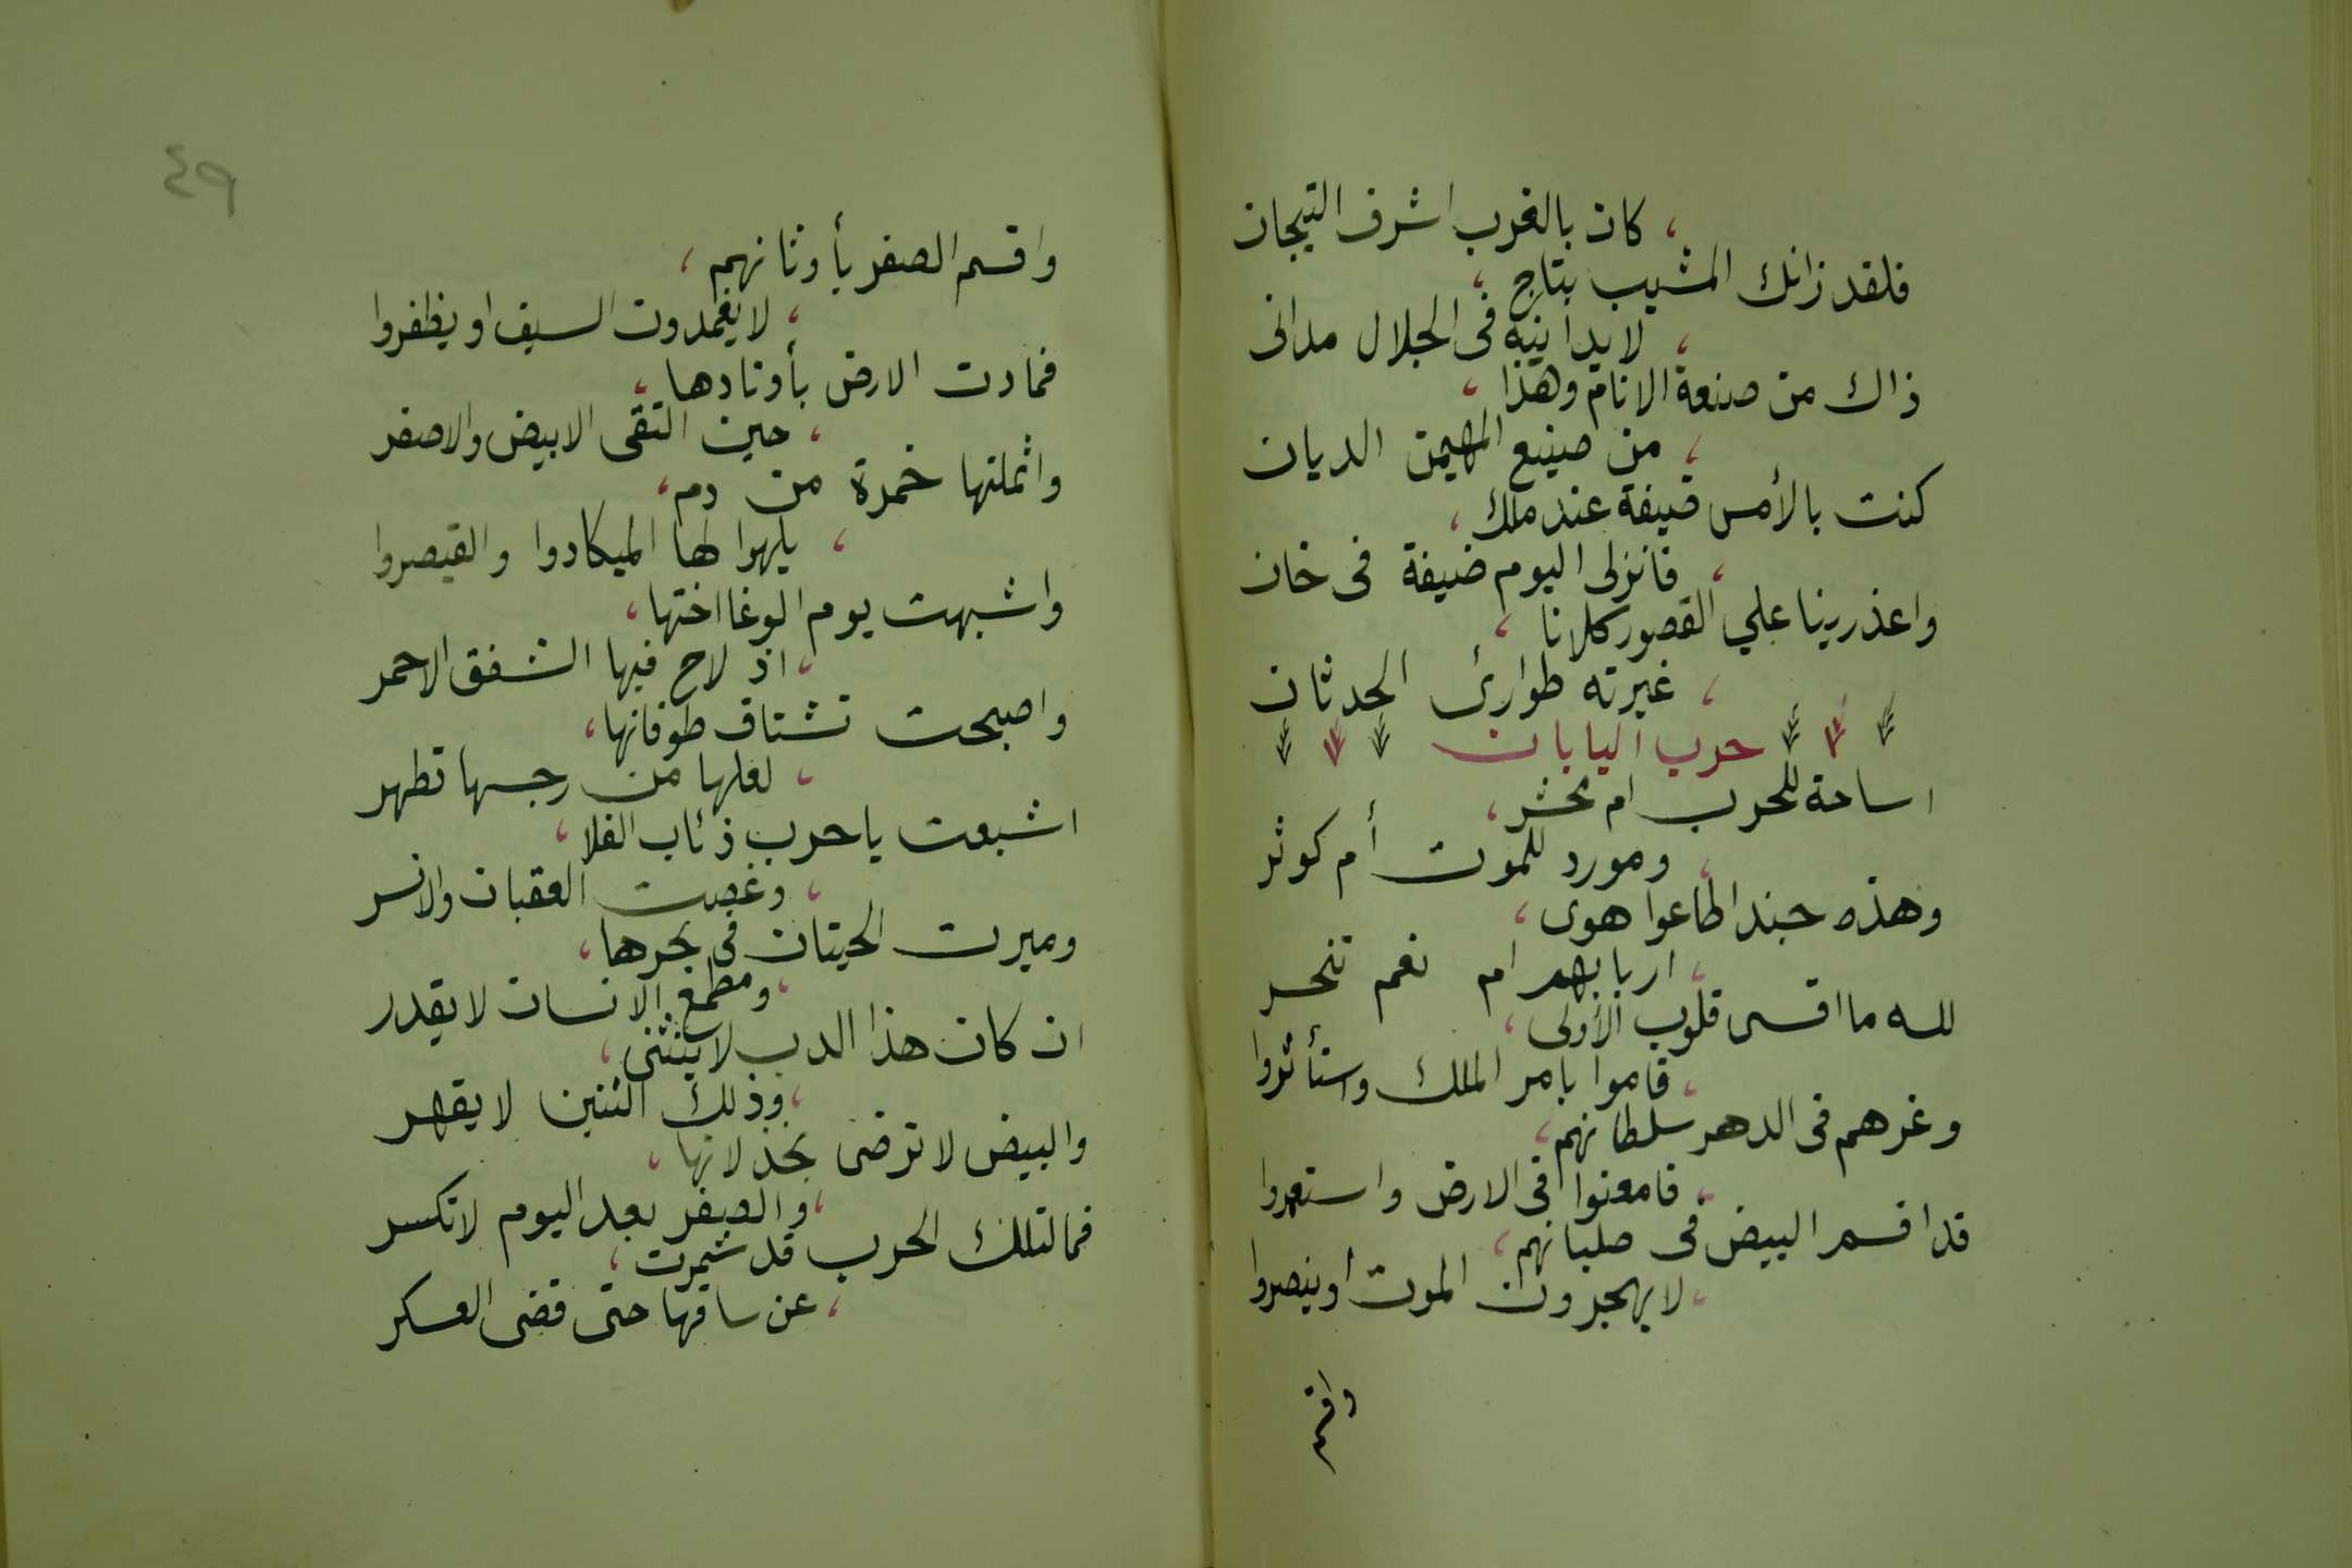 ، كان بالغرب اشرف التيجان
فلقد زانك المشيب بتاج ،
، لا يدانيه فى الجلال مدانى
ذاك من صنعة الانام وهذا ،
، من صنيع المهيمن الديان
كنت بالأمس ضيفة عند ملك ،
، فانزلى اليوم ضيفة فى خان
واعذرينا علي القصور كلانا ،
، غيرته طوارئ الحدثان
حرب اليابان
اساحة للحرب ام محشر ،
، ومورد للموت أم كوثر
وهذه جند اطاعوا هوى ،
، اربابهم ام نعم تنحر
لله ما اقسى قلوب الأولى ،
، قاموا بامر الملك واستأثروا
وغرهم فى الدهر سلطانهم ،
، فامعنوا فى الارض واستعمروا
قد اقسم البيض فى صلبانهم ،
، لا يهجرون الموت أو ينصروا
واقسم
٤٩
واقسم الصفر بأوثانهم ،
، لا يغمدون السيف او يظفروا
فمادت الارض بأوتادها ،
، حين التقى الابيض والاصفر
واثملتها خمرة من دم ،
، يلهوا لها الميكادوا والقيصروا
واشبهت يوم الوغا اختها ،
، اذ لاح فيها الشفق الاحمر
واصبحت تشتاق طوفانها ،
، لعلها من رجسها تطهر
اشبعت يا حرب ذئاب الفلا ،
، وغصت العقبان والانسر
وميرت الحيتان فى بحرها ،
، ومطمع الانسان لا يقدر
ان كان هذا الدب لا ينثنى ،
، وذلك التنين لا يقهر
والبيض لا ترضى بخذلانها ،
، والصفر بعد اليوم لا تكسر
فما لتلك الحرب قد شمرت ،
، عن ساقها حتى قضى العسكر